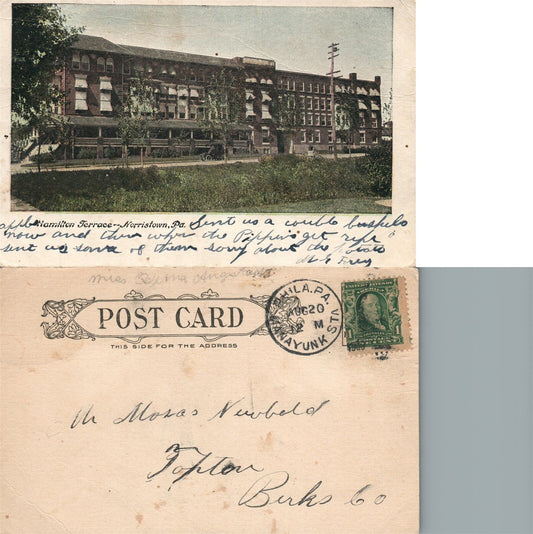 Hamilton Terrace--Norristown, Pa. Sent us a couble buskels
now and then when the Pippins get ripe
sent us some of them sorry about the
H. G. Frey
Miss
POST CARD
THIS SIDE FOR THE ADDRESS
PHILA, PA.
AUG 20
12 M
MANAYUNK STA.
Mr Mosas Newbold
Topton
Berks Co